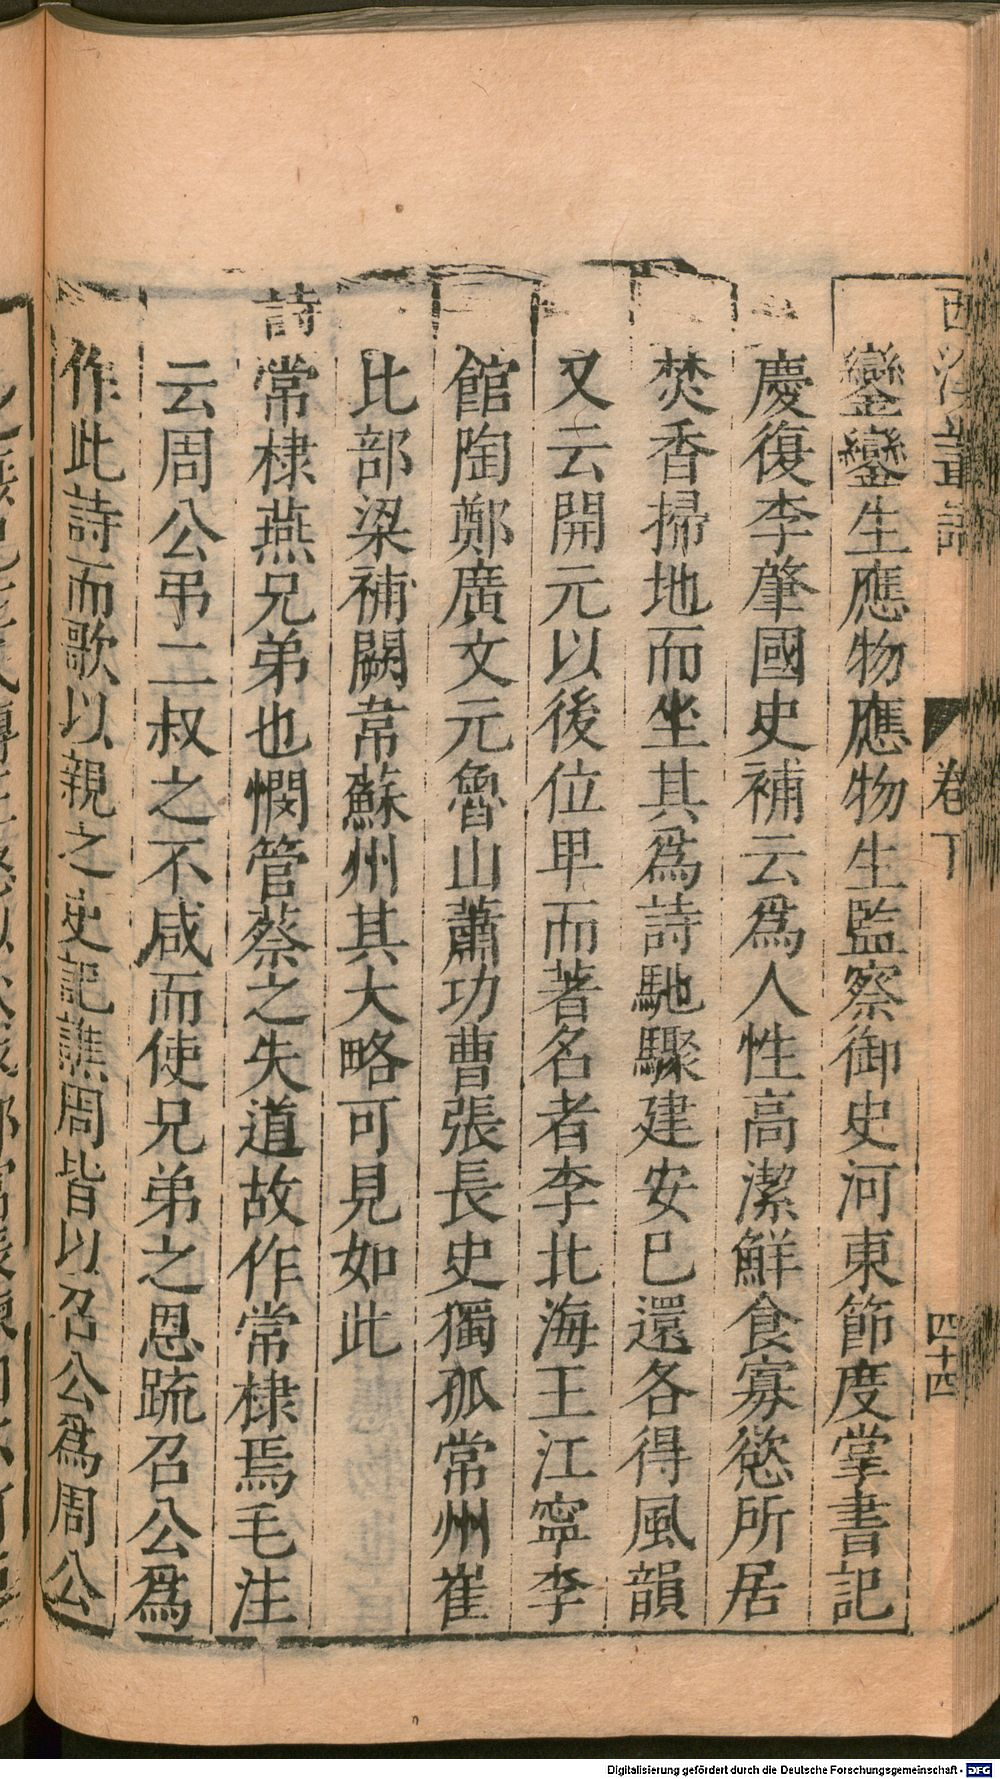 西溪叢語　卷下　四十四
鑾鑾生應物應物生監察御史河東節度掌書記
慶復李肇國史補云爲人性高潔鮮食寡慾所居
焚香掃地而坐其爲詩馳驟建安已還各得風韻
又云開元以後位卑而著名者李北海王江寧李
館陶鄭廣文元魯山蕭功曹張長史獨孤常州崔
比部梁補闕韋蘇州其大略可見如此
詩常棣燕兄弟也憫管蔡之失道故作常棣焉毛注
云周公弔二叔之不咸而使兄弟之恩疏召公爲
作此詩而歌以親之史記譙周皆以召公爲周公
Digitalisierung gefördert durch die Deutsche Forschungsgemeinschaft - DFG